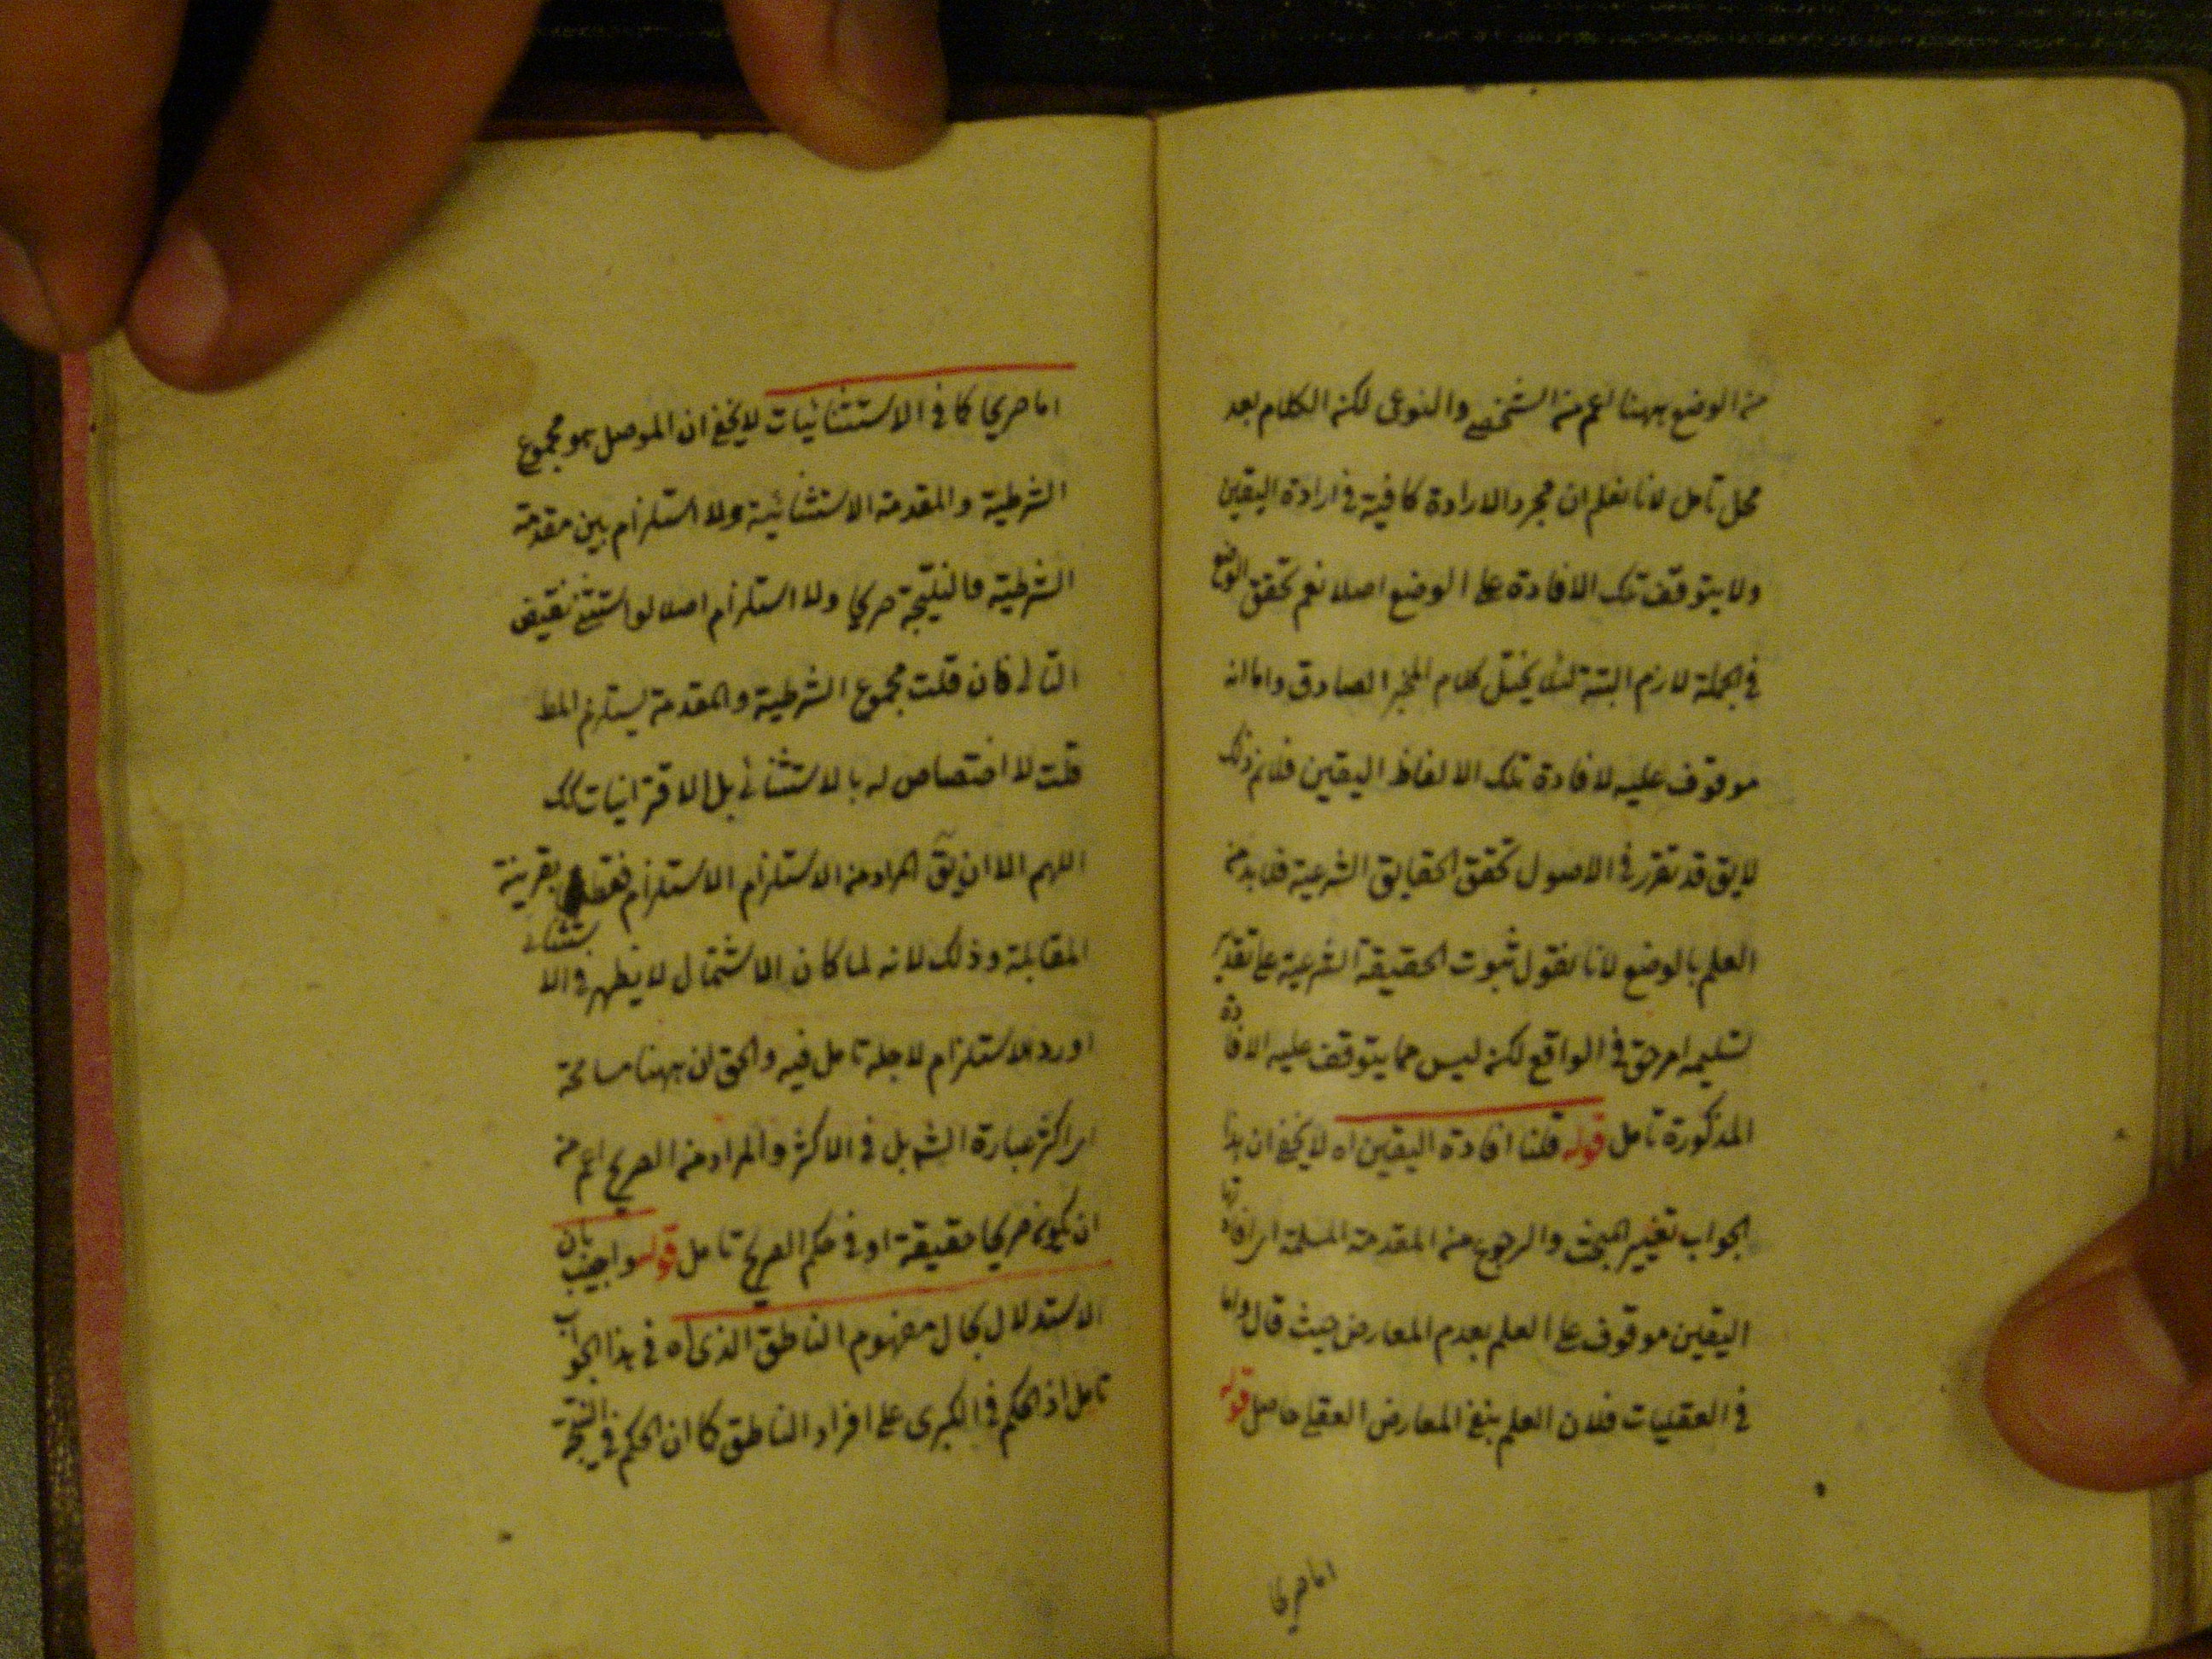 من الوضع ههنا اعم من الشخصي والنوعي لكن الكلام بعد
محل تامل لانا نعلم ان مجرد الارادة كافية في ارادة اليقين
ولا يتوقف تلك الافادة على الوضع اصلا نعم تحقق الوضع
في الجملة لازم البتة لئلا يختل كلام المخبر الصادق واما انه
موقوف عليه لافادة تلك الالفاظ اليقين فلا نم ذلك
لا يق قد تقرر في الاصول تحقق الحقايق الشرعية فلا بد من
العلم بالوضع لانا نقول ثبوت الحقيقة الشرعية على تقدير
تسليمه امر حق في الواقع لكن ليس مما يتوقف عليه الافادة
المذكورة تامل قوله قلنا افادة اليقين اه لا يخفى ان هذا
الجواب تغيير المبحث والرجوع من المقدمة المسلمة اي افادتها
اليقين موقوف على العلم بعدم المعارض حيث قال واما
في العقليات فلان العلم بنفي المعارض العقلي حاصل قوله
اما صريحا
اما صريحا كما في الاستثنائيات لا يخفى ان الموصل هو مجموع
الشرطية والمقدمة الاستثنائية ولا استلزام بين مقدمة
الشرطية والنتيجة صريحا ولا استلزام اصلا لو استثنى نقيض
التالي فان قلت مجموع الشرطية والمقدمة يستلزم المط
قلت لا اختصاص له بالاستثنائي بل الاقترانيات كك
اللهم الا ان يق المراد من الاستلزام الاستلزام فقط بقرينة
المقابلة وذلك لانه لما كان الاشتمال لا يظهر في الاستثنائي
اورد الاستلزام لاجله تامل فيه والحق ان ههنا مسامحة
اي اكثر عبارة الشم بل في الاكثر والمراد من الصريح اعم من
ان يكون صريحا حقيقة او في حكم الصريح تامل قوله واجيب بان
الاستدلال بحال مفهوم الناطق الذي اه في هذا الجواب
تامل اذ الحكم في الكبرى على افراد الناطق كما ان الحكم في النتيجة